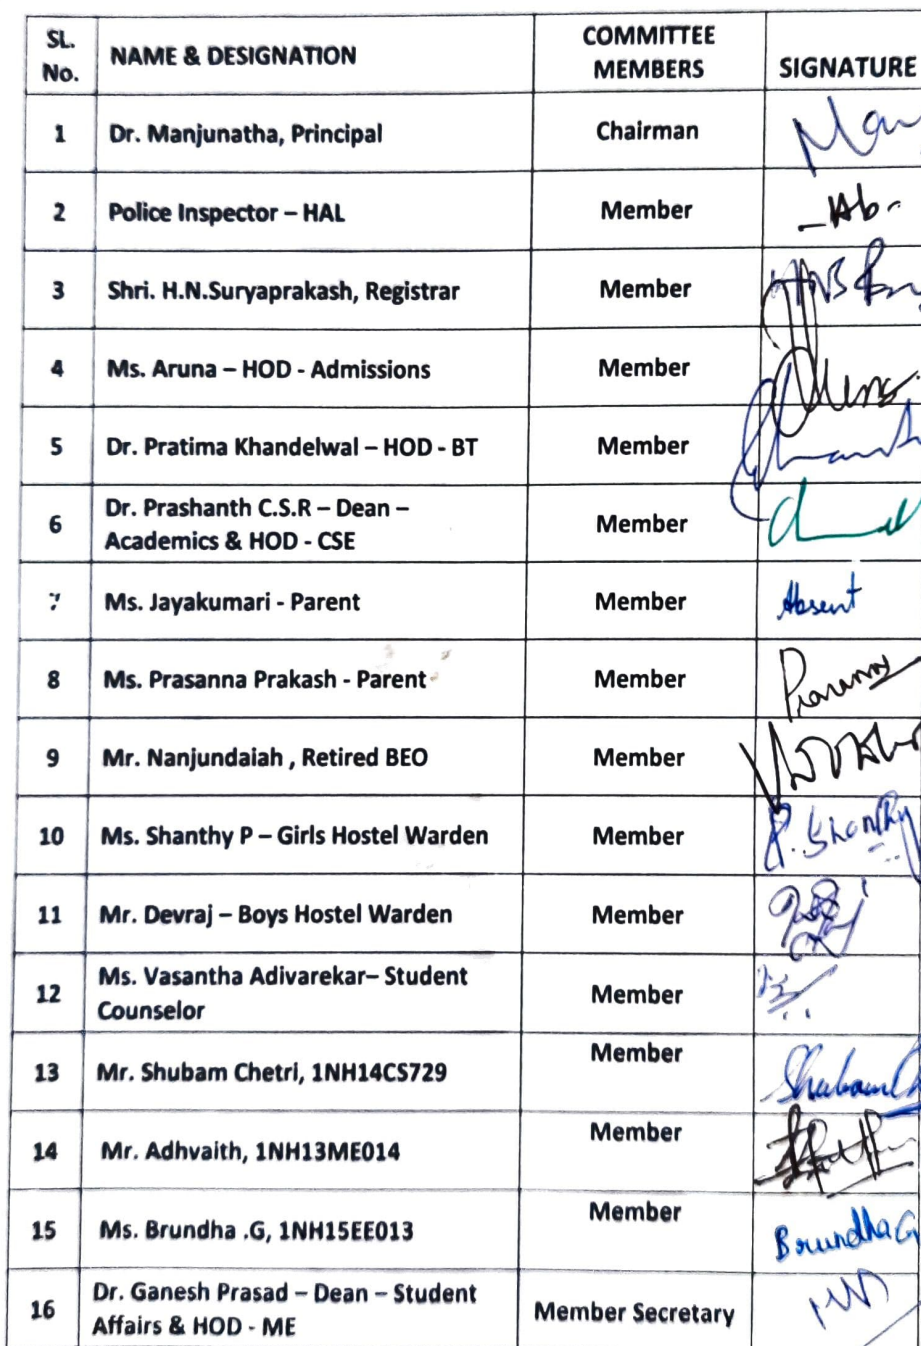 SL. No. NAME & DESIGNATION COMMITTEE MEMBERS SIGNATURE
1 Dr. Manjunatha, Principal Chairman
2 Police Inspector – HAL Member -Ab-
3 Shri. H.N.Suryaprakash, Registrar Member
4 Ms. Aruna – HOD - Admissions Member
5 Dr. Pratima Khandelwal – HOD - BT Member
6 Dr. Prashanth C.S.R – Dean –
Academics & HOD - CSE Member
7 Ms. Jayakumari - Parent Member Absent
8 Ms. Prasanna Prakash - Parent Member
9 Mr. Nanjundaiah , Retired BEO Member
10 Ms. Shanthy P – Girls Hostel Warden Member P. Shanthy
11 Mr. Devraj – Boys Hostel Warden Member
12 Ms. Vasantha Adivarekar– Student
Counselor Member
13 Mr. Shubam Chetri, 1NH14CS729 Member
14 Mr. Adhvaith, 1NH13ME014 Member
15 Ms. Brundha .G, 1NH15EE013 Member Brundha G
16 Dr. Ganesh Prasad – Dean – Student
Affairs & HOD - ME Member Secretary